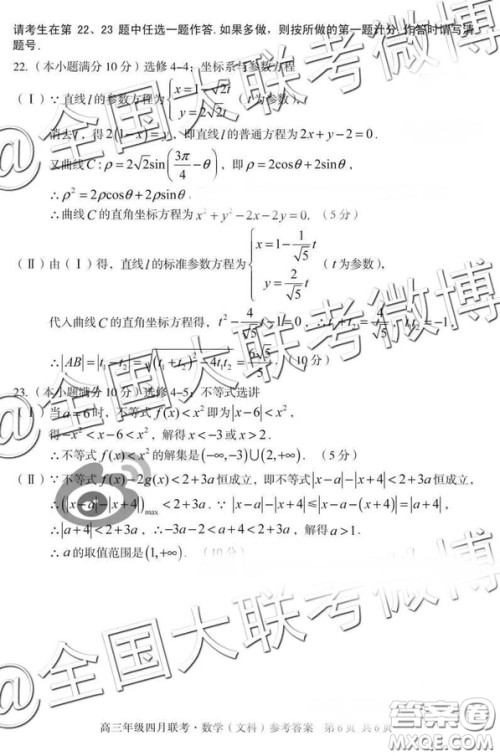 请考生在第 22、23 题中任选一题作答.如果多做,则按所做的第一题计分.作答时请写清
题号.
22.(本小题满分 10 分)选修 4-4:坐标系与参数方程
(Ⅰ)∵直线 l 的参数方程为 { x=1-√2t
(t 为参数),
消去 t,得 2(1-x)=y,即直线 l 的普通方程为 2x+y-2=0.
又曲线 C:ρ=2√2sin(3π/4-θ),即 ρ=2cosθ+2sinθ,
∴ρ²=2ρcosθ+2ρsinθ.
∴曲线 C 的直角坐标方程为 x²+y²-2x-2y=0.(5 分)
(Ⅱ)由(Ⅰ)得,直线 l 的标准参数方程为 { x=1-1/√5 t
y=2/√5 t (t 为参数),
代入曲线 C 的直角坐标方程得,t²-4/√5 t-1=0,∴t₁+t₂=4/√5,t₁t₂=-1,
∴|AB|=|t₁-t₂|=√((t₁+t₂)²-4t₁t₂)=6√5/5.(10 分)
23.(本小题满分 10 分)选修 4-5:不等式选讲
(Ⅰ)当 a=6 时,不等式 f(x)<x² 即为|x-6|<x²,
得-x²<x-6<x²,解得 x<-3 或 x>2.
∴不等式 f(x)<x² 的解集是(-∞,-3)∪(2,+∞).(5 分)
(Ⅱ)∵不等式 f(x)-2g(x)<2+3a 恒成立,即不等式|x-a|-|x+4|<2+3a 恒成立,
∴(|x-a|-|x+4|)max<2+3a.∵|x-a|-|x+4|≤|x-a-(x+4)|=|a+4|,
∴|a+4|<2+3a,∴-3a-2<a+4<2+3a,解得 a>1.
∴a 的取值范围是(1,+∞).(10 分)
高三年级四月联考·数学(文科)参考答案 第 6 页 共 6 页
@全国大联考微博
@全国大联考微博
@全国大联考微博